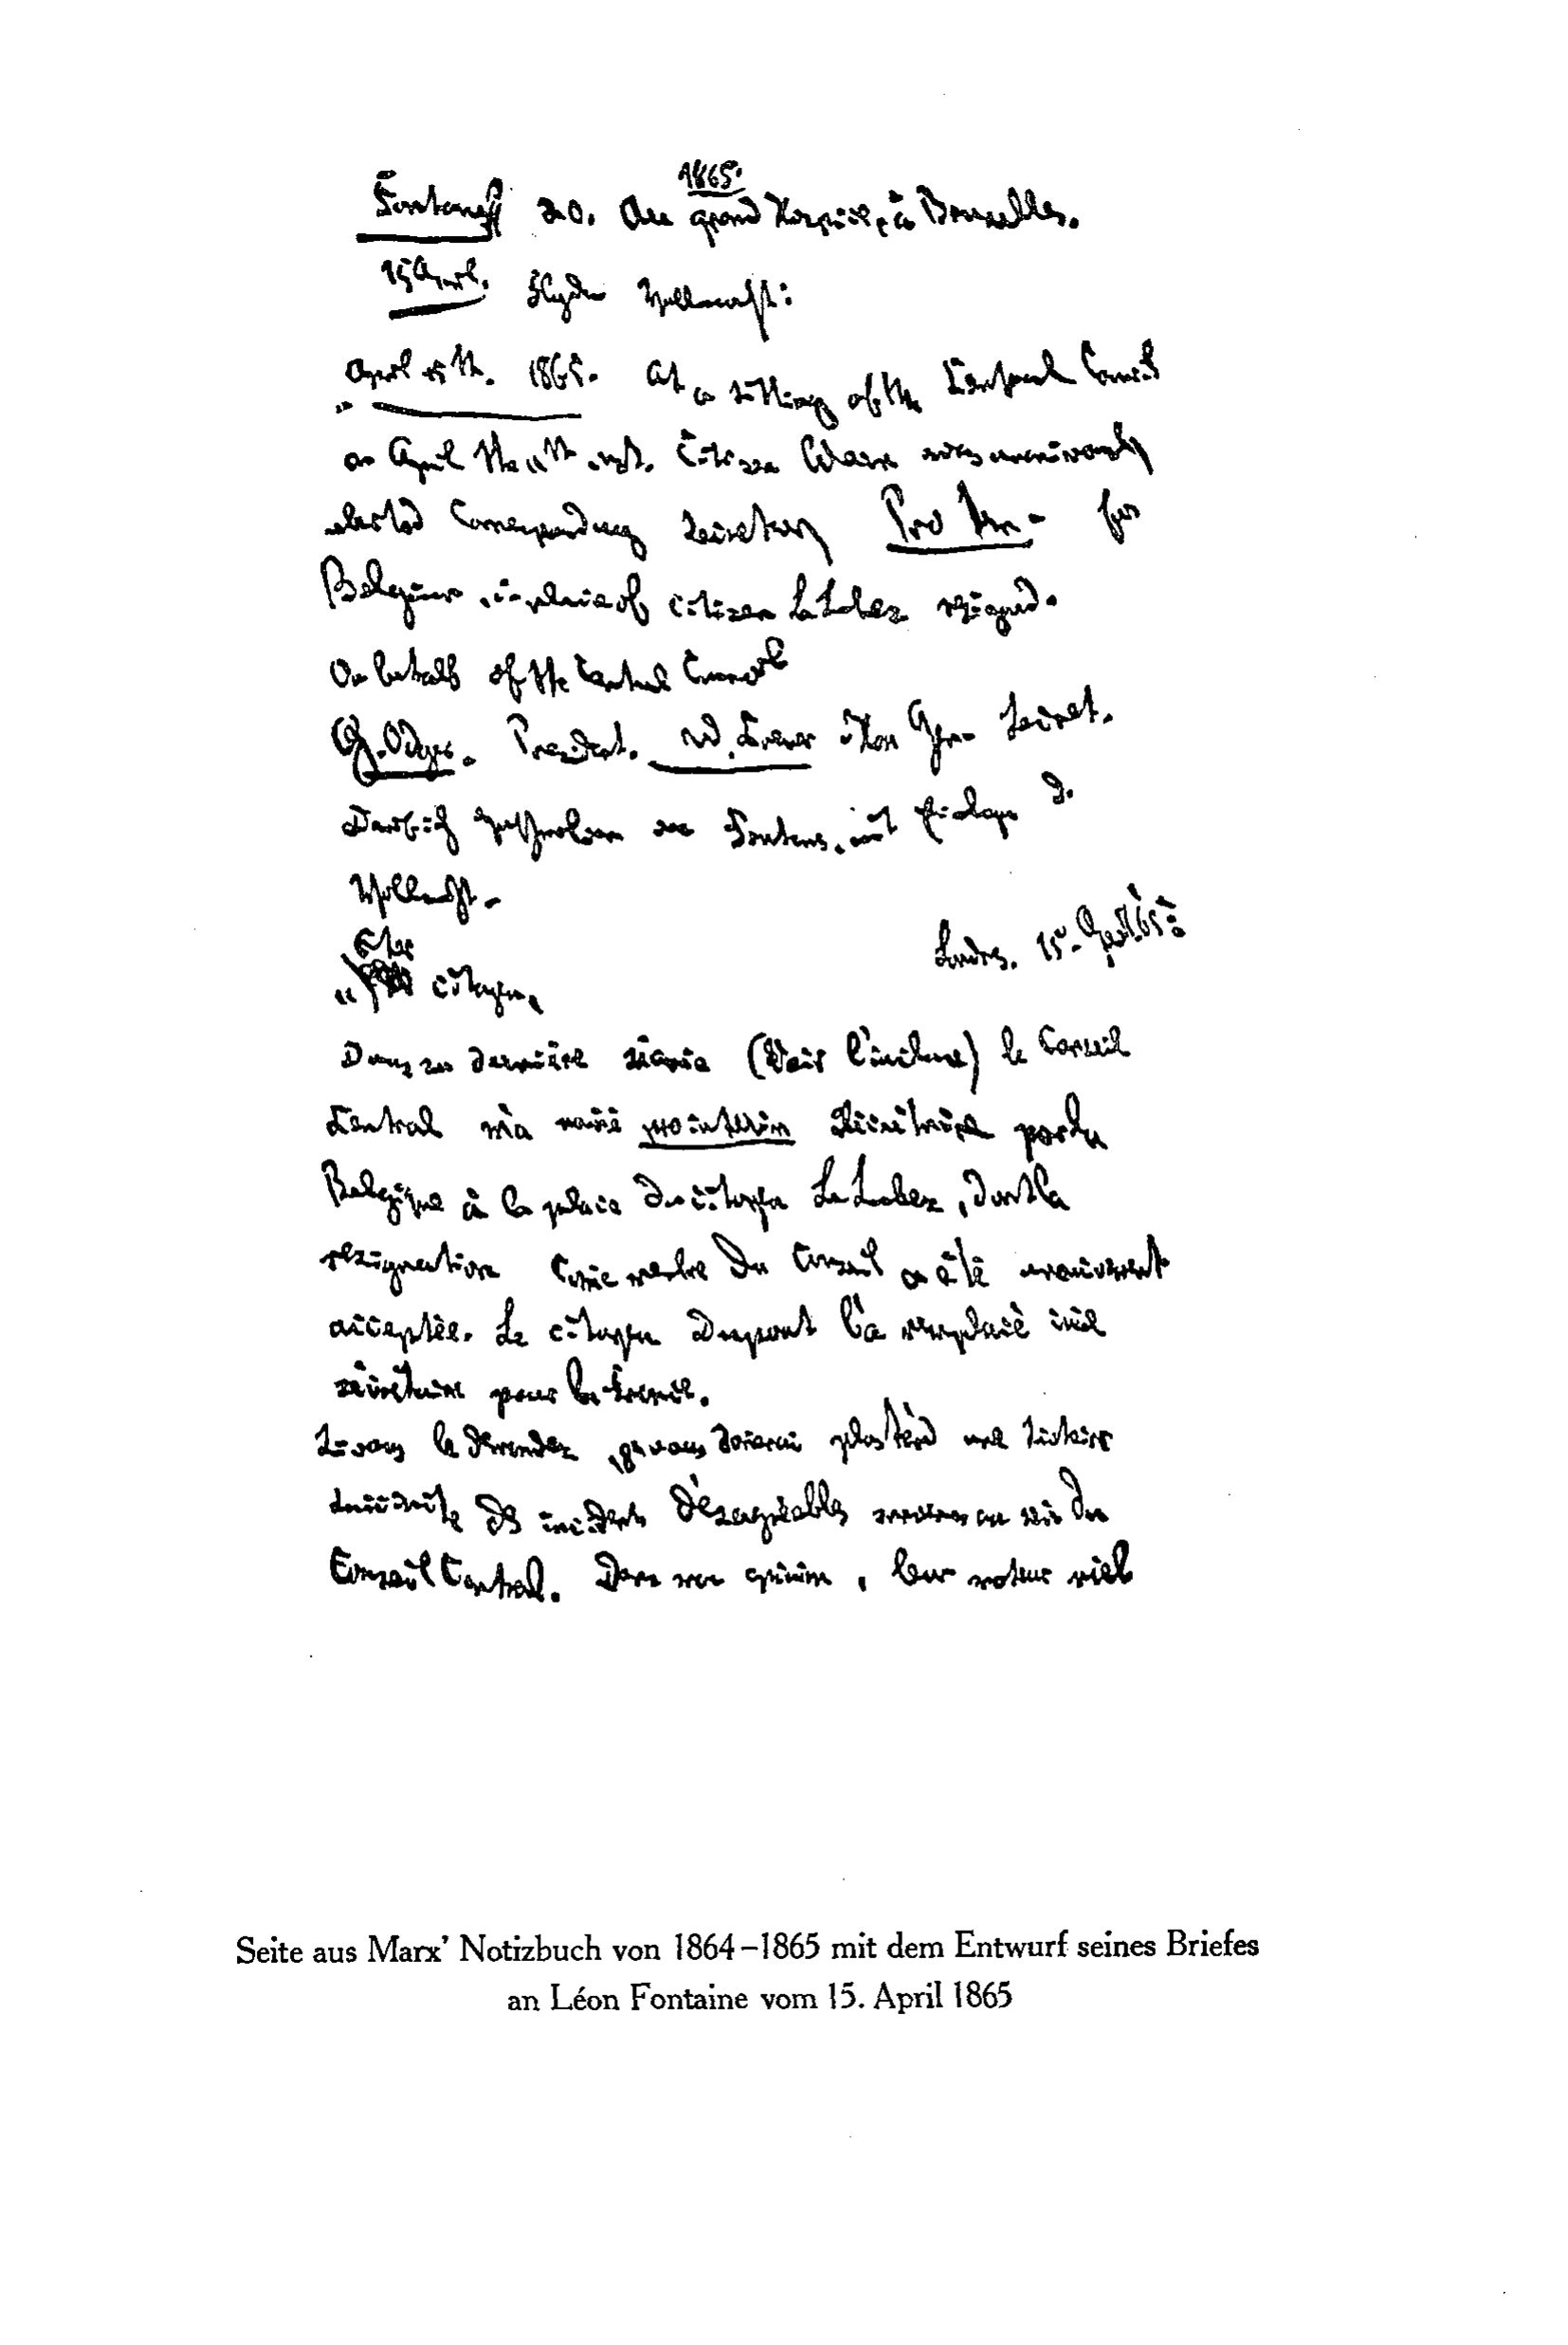 1865.
20. du grand Hospice, à Bruxelles.
15 April.
April 15th. 1865. At a sitting of the Central Council
on April the 11th inst. Citizen Marx was unanimously
elected Corresponding Secretary Pro tem. for
Belgium, in place of citizen Le Lubez resigned.
On behalf of the Central Council
G. Odger. President. W. Cremer Hon Gen Secret.
Vollmacht.
Londres. 15. April 65.
Cher
" citoyen,
Dans sa dernière séance (Voir l'incluse) le Conseil
Central m'a nommé pro interim Secrétaire pour la
Belgique à la place du citoyen Le Lubez, dont la
résignation comme membre du Conseil a été unanimement
acceptée. Le citoyen Dupont l'a remplacé
secrétaire pour la France.
Si vous le demandez, je vous donnerai plus tard une
des incidents désagréables au sein du
Conseil Central. Dans mon opinion, leur moteur réel
Seite aus Marx’ Notizbuch von 1864–1865 mit dem Entwurf seines Briefes
an Léon Fontaine vom 15. April 1865